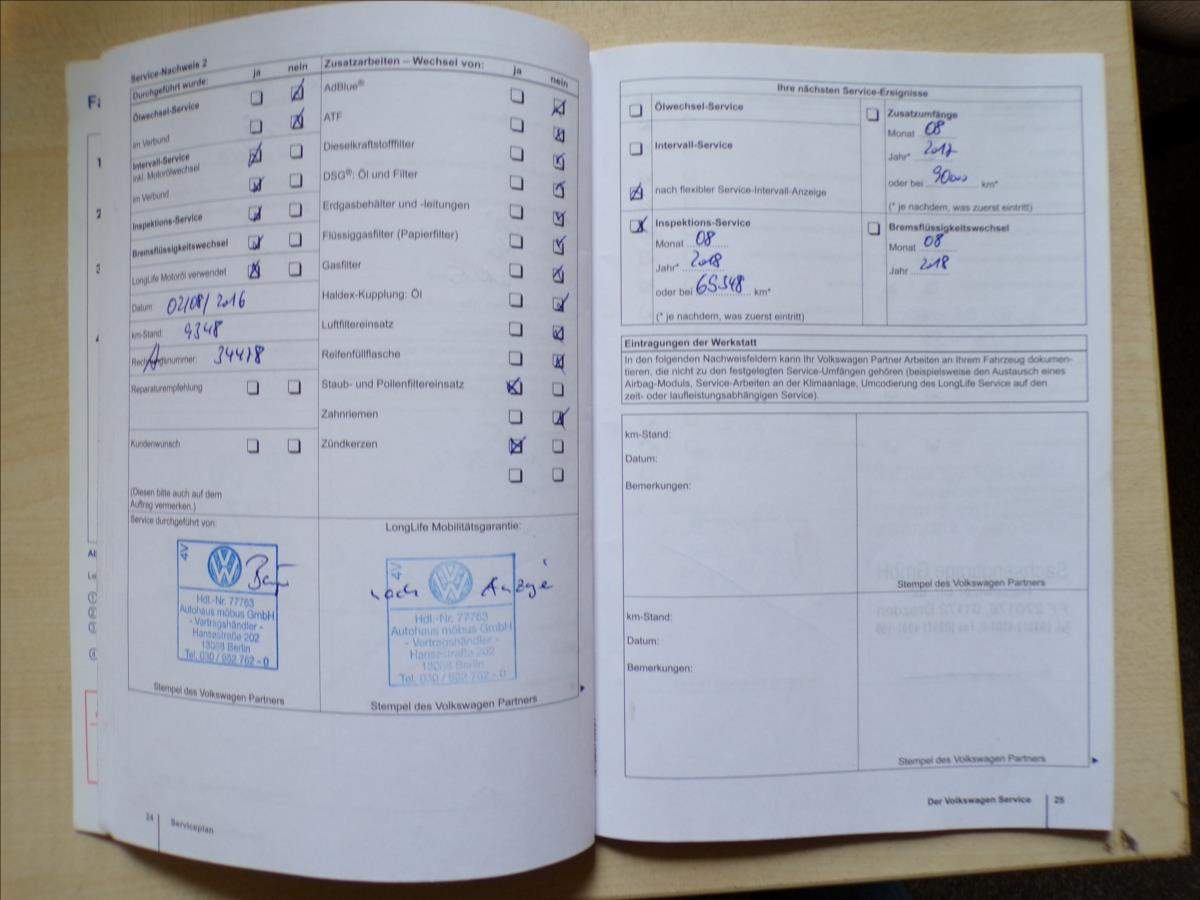 Service-Nachweis 2
Durchgeführt wurde: ja nein
Ölwechsel-Service
im Verbund
Intervall-Service
inkl. Motorölwechsel
im Verbund
Inspektions-Service
Bremsflüssigkeitswechsel
LongLife Motoröl verwendet
Datum: 02/08/2016
km-Stand: 9348
34418
Reparaturempfehlung
Kundenwunsch
(Diesen bitte auch auf dem
Auftrag vermerken.)
Service durchgeführt von:
4V
Hdl.-Nr. 77763
Autohaus möbus GmbH
- Vertragshändler -
Hansastraße 202
13088 Berlin
Tel. 030 / 962 762 - 0
Stempel des Volkswagen Partners
Zusatzarbeiten – Wechsel von: ja nein
AdBlue®
ATF
Dieselkraftstofffilter
DSG®: Öl und Filter
Erdgasbehälter und -leitungen
Flüssiggasfilter (Papierfilter)
Gasfilter
Haldex-Kupplung: Öl
Luftfiltereinsatz
Reifenfüllflasche
Staub- und Pollenfiltereinsatz
Zahnriemen
Zündkerzen
LongLife Mobilitätsgarantie:
4V
nach Anzeige
Hdl.-Nr. 77763
Autohaus möbus GmbH
- Vertragshändler -
Hansastraße 202
13088 Berlin
Tel. 030 / 962 762 - 0
Stempel des Volkswagen Partners
24 Serviceplan
Ihre nächsten Service-Ereignisse
Ölwechsel-Service
Intervall-Service
nach flexibler Service-Intervall-Anzeige
Zusatzumfänge
Monat 08
Jahr* 2017
oder bei 90000 km*
(* je nachdem, was zuerst eintritt)
Inspektions-Service
Monat 08
Jahr* 2018
oder bei 69348 km*
(* je nachdem, was zuerst eintritt)
Bremsflüssigkeitswechsel
Monat 08
Jahr 2018
Eintragungen der Werkstatt
In den folgenden Nachweisfeldern kann Ihr Volkswagen Partner Arbeiten an Ihrem Fahrzeug dokumen-
tieren, die nicht zu den festgelegten Service-Umfängen gehören (beispielsweise den Austausch eines
Airbag-Moduls, Service-Arbeiten an der Klimaanlage, Umcodierung des LongLife Service auf den
zeit- oder laufleistungsabhängigen Service).
km-Stand:
Datum:
Bemerkungen:
Stempel des Volkswagen Partners
km-Stand:
Datum:
Bemerkungen:
Stempel des Volkswagen Partners
Der Volkswagen Service 25